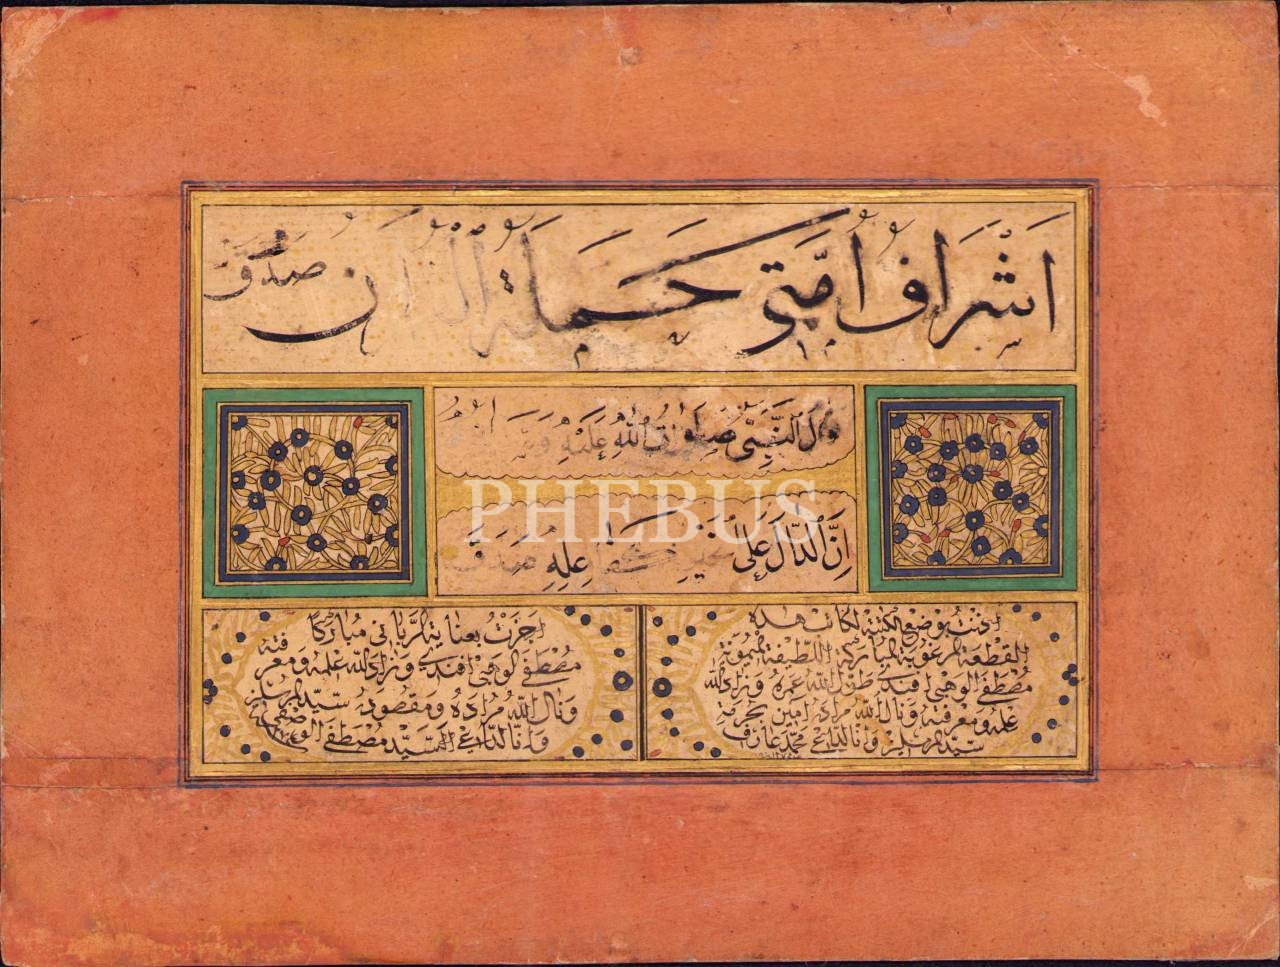 اَشْرَافُ اُمَّتِي حَمَلَةُ الْقُرْاٰنِ صَدَقَ
قَالَ النَّبِيُّ صَلَوَاتُ اللّٰهِ عَلَيْهِ وَ
اِنَّ الدَّالَّ عَلَى الْخَيْرِ كَفَاعِلِهِ صَدَقَ
PHEBUS
اذنت بوضع الكتبة لكاتب هذه
القطعة المرغوبة المباركة اللطيفة الميمونة
مصطفى الوهبي افندي طول الله عمره وزاد الله
علمه ومعرفته ونال الله مراده امين بحرمة
سيد المرسلين وانا الداعي محمد عارف
اجزت بعناية الرباني مباركا
مصطفى الوهبي افندي وزاد الله علمه ومعرفته
ونال الله مراده ومقصوده سيد المرسلين
وانا الداعي السيد مصطفى الوصفي